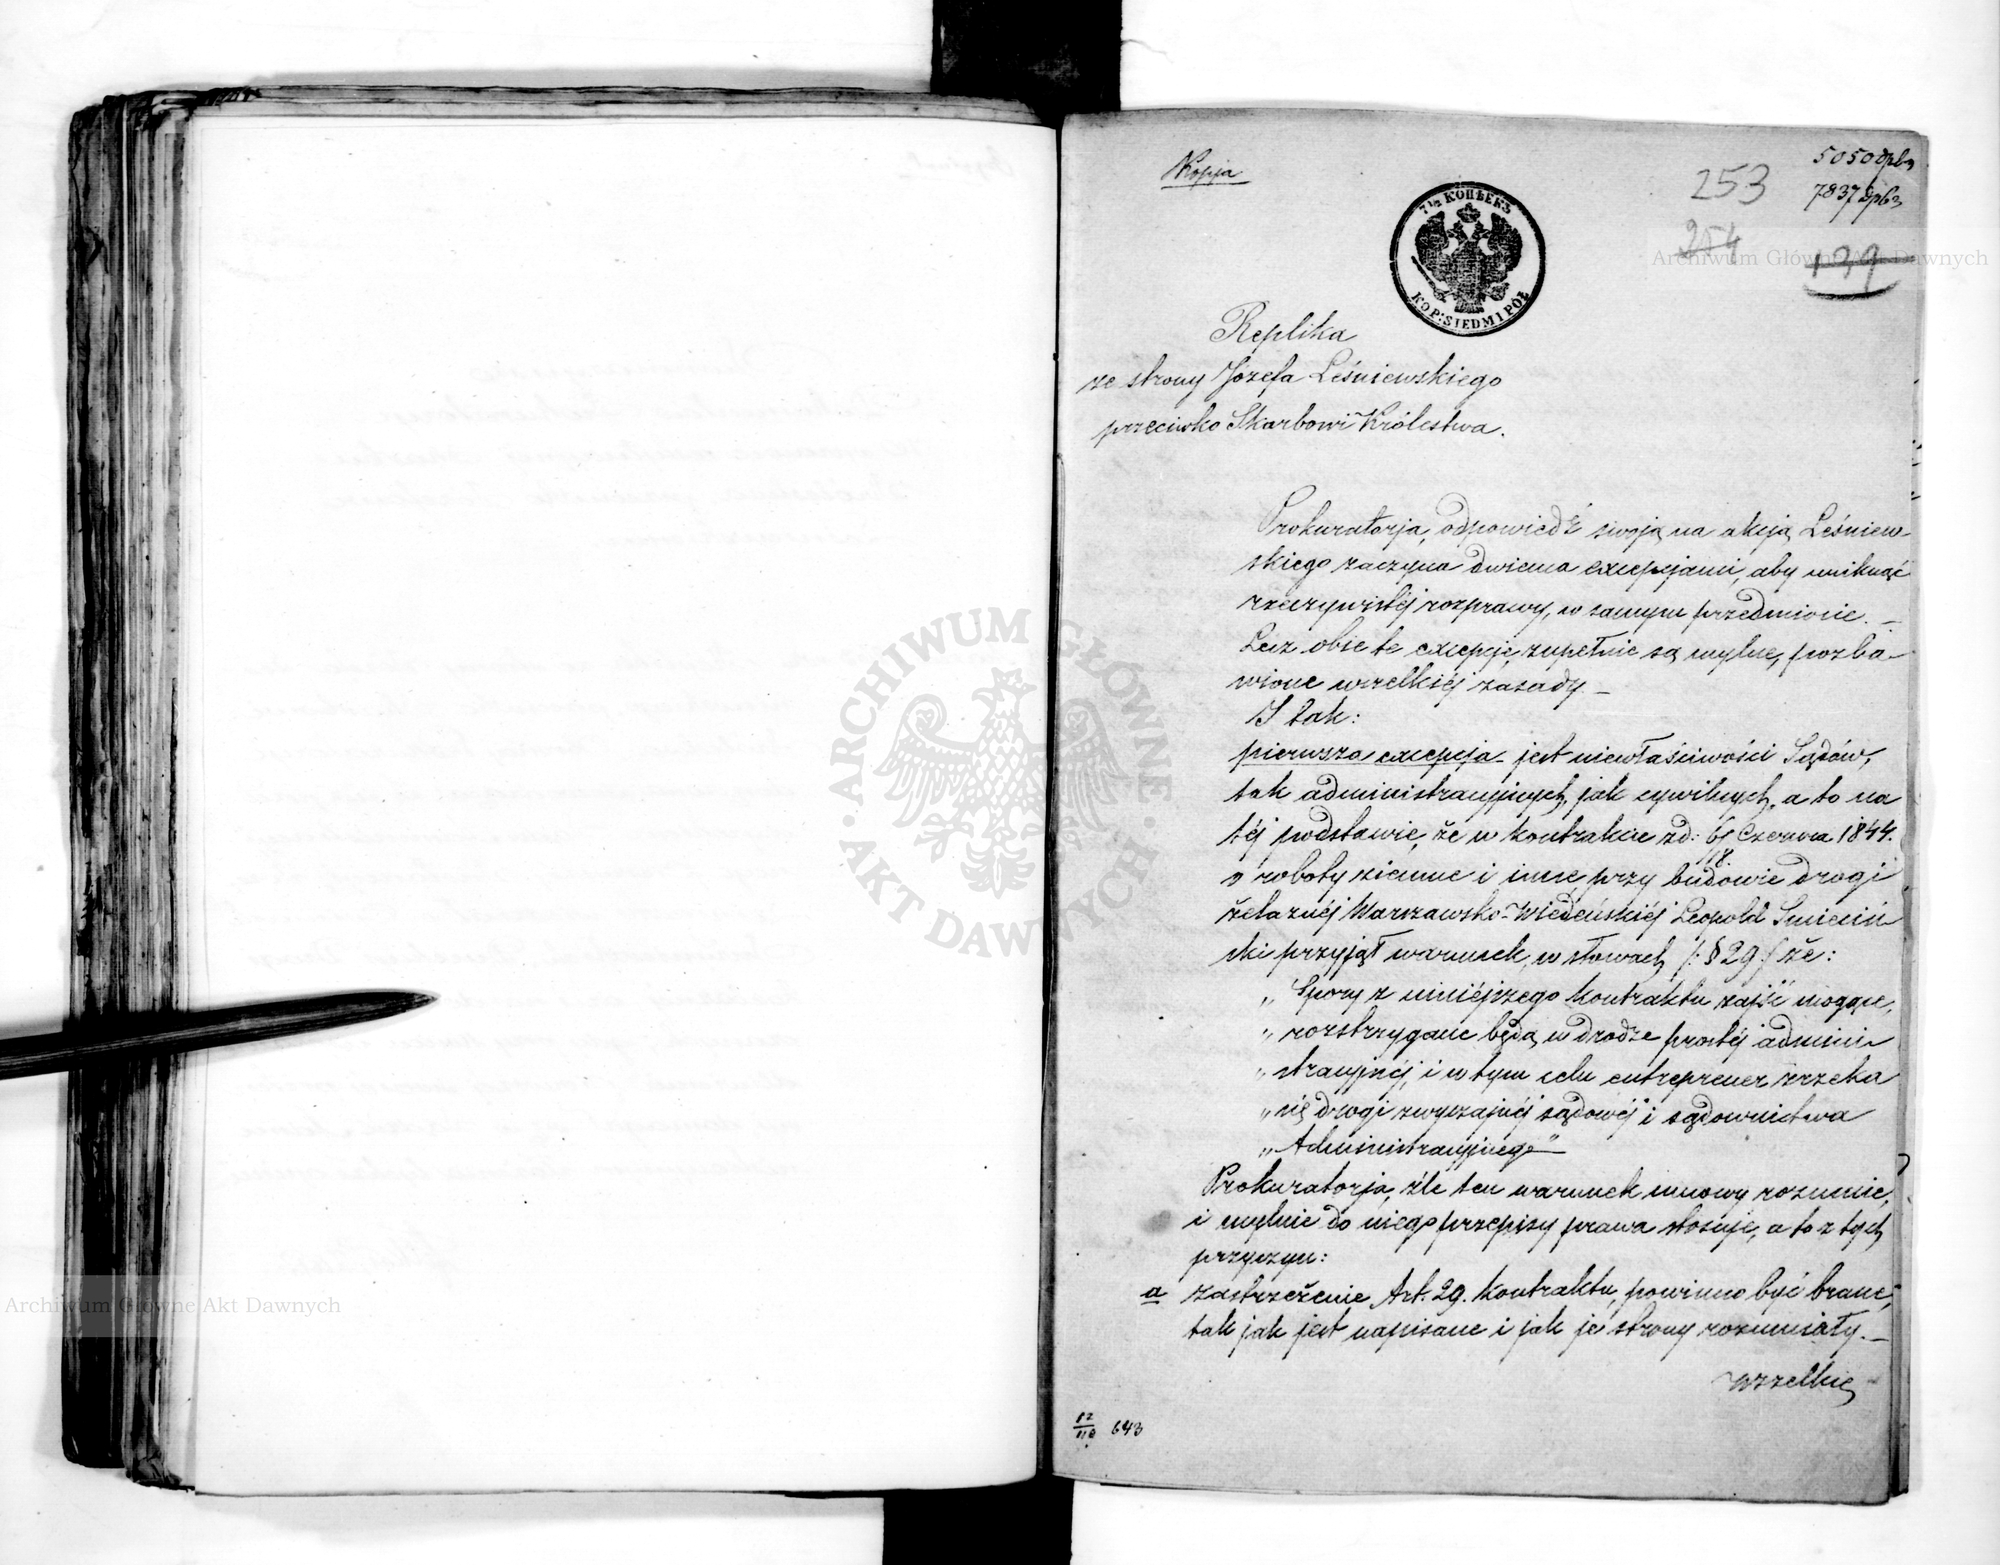 Kopja
7½ КОПѢЕКЪ
KOP: SIEDM I PÓŁ
253
254
5050
7837
139
Replika
ze strony Józefa Leśniewskiego
przeciwko Skarbowi Królestwa.
Prokuratorja, odpowiedź swoją na akcją Leśniew-
skiego zaczyna dwiema excepcjami, aby uniknąć
rzeczywistéj rozprawy, w samym przedmiocie. –
Lecz obie te excepcje, zupełnie są mylne, pozba-
wione wszelkiéj zasady –
I tak:
pierwsza excepcja – jest niewłaściwości Sądów,
tak administracyjnych, jak cywilnych, a to na
téj podstawie, że w kontrakcie z d: 6/18 Czerwca 1844.
o roboty ziemne i inne, przy budowie drogi
żelaznéj Warszawsko-Wiedeńskiéj Leopold Smieciń-
ski przyjął warunek, w słowach /: § 29 / że:
„ Spory z niniéjszego kontraktu zajść mogące,
„ rozstrzygane będą, w drodze prostéj admini-
„ stracyjnéj, i w tym celu entreprener zrzeka
„ się drogi zwyczajnéj sądowéj i sądownictwa
„ Administracyjnego"
Prokuratorja, źle ten warunek umowy rozumie,
i mylnie do niego przepisy prawa stosuje, a to z tych
przyczyn:
a zastrzeżenie Art. 29. kontraktu, powinno być brane,
tak jak jest napisane i jak je strony rozumiały. –
wszelkie
12/110 643
ARCHIWUM GŁÓWNE AKT DAWNYCH
Archiwum Główne Akt Dawnych
Archiwum Główne Akt Dawnych